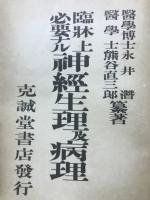 醫學博士永井潛
醫學士熊谷直三郎
纂著
臨牀上
必要ナル
神經生理及病理
克誠堂書店發行